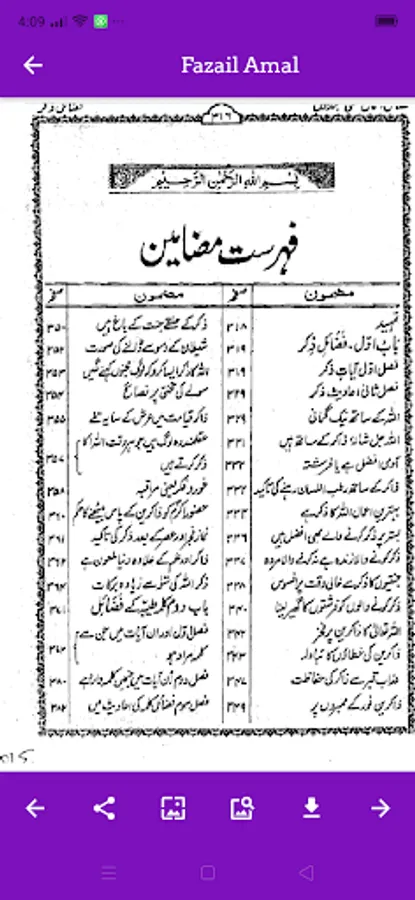 4:09
Fazail Amal
فضائل ذکر
۳۱۶
بسم اللہ الرحمٰن الرحیم
فہرست مضامین
مضمون صفحہ
تمہید ۳۱۸
باب اول، فضائل ذکر ۳۱۹
فصل اول آیات ذکر ۳۱۹
فصل ثانی احادیث ذکر ۳۲۹
اللہ کے ساتھ نیک گمانی ۳۲۹
اللہ جل شانہٗ ذاکر کے ساتھ ہیں ۳۳۱
آدمی افضل ہے یا فرشتہ ۳۳۲
ذاکر کے ساتھ رطب اللسان رہنے کی تاکید ۳۳۲
بہترین اعمال اللہ کا ذکر ہے ۳۳۴
بستر پر ذکر کرنے والے بھی افضل ہیں ۳۳۶
ذکر کرنے والا زندہ ہے نہ کرنے والا مردہ ۳۳۷
جنتیوں کا ذکر سے خالی وقت پر افسوس ۳۳۸
ذکر کرنے والوں کو فرشتوں کا گھیر لینا ۳۴۰
اللہ تعالیٰ کا ذاکرین پر فخر ۳۴۲
ذاکرین کی خطاؤں کا تبادلہ ۳۴۳
عذاب قبر سے ذاکر کی حفاظت ۳۴۷
ذاکرین نور کے ممبروں پر ۳۴۹
مضمون صفحہ
ذکر کے حلقے جنت کے باغ ہیں ۳۵۰
شیطان کے وسوسے ڈالنے کی صورت ۳۵۲
اللہ کا ذکر ایسا کرو کہ لوگ مجنوں کہنے لگیں ۳۵۳
سونے کی تختی پر نصائح ۳۵۴
ذاکر قیامت میں عرش کے سایہ تلے ۳۵۵
عقلمند وہ لوگ ہیں جو ہر وقت اللہ کا
ذکر کرتے ہیں ۳۵۷
غور و فکر یعنی مراقبہ ۳۵۸
حضور اکرم کو ذاکرین کے پاس بیٹھنے کا حکم ۳۶۰
نماز فجر اور عصر کے بعد ذکر کی تاکید ۳۶۱
ذاکر اور علم کے علاوہ دنیا ملعون ہے
ذکر اللہ کی سو سے زیادہ برکات ۳۶۴
باب دوم کلمہ طیبہ کے فضائل ۳۸۱
فصل اول ان آیات میں جن سے
کلمہ مراد ہے
فصل دوم ان آیات میں جنمیں کلمہ وارد ہے ۳۸۰
فصل سوم فضائل کلمہ کی احادیث میں ۳۸۲